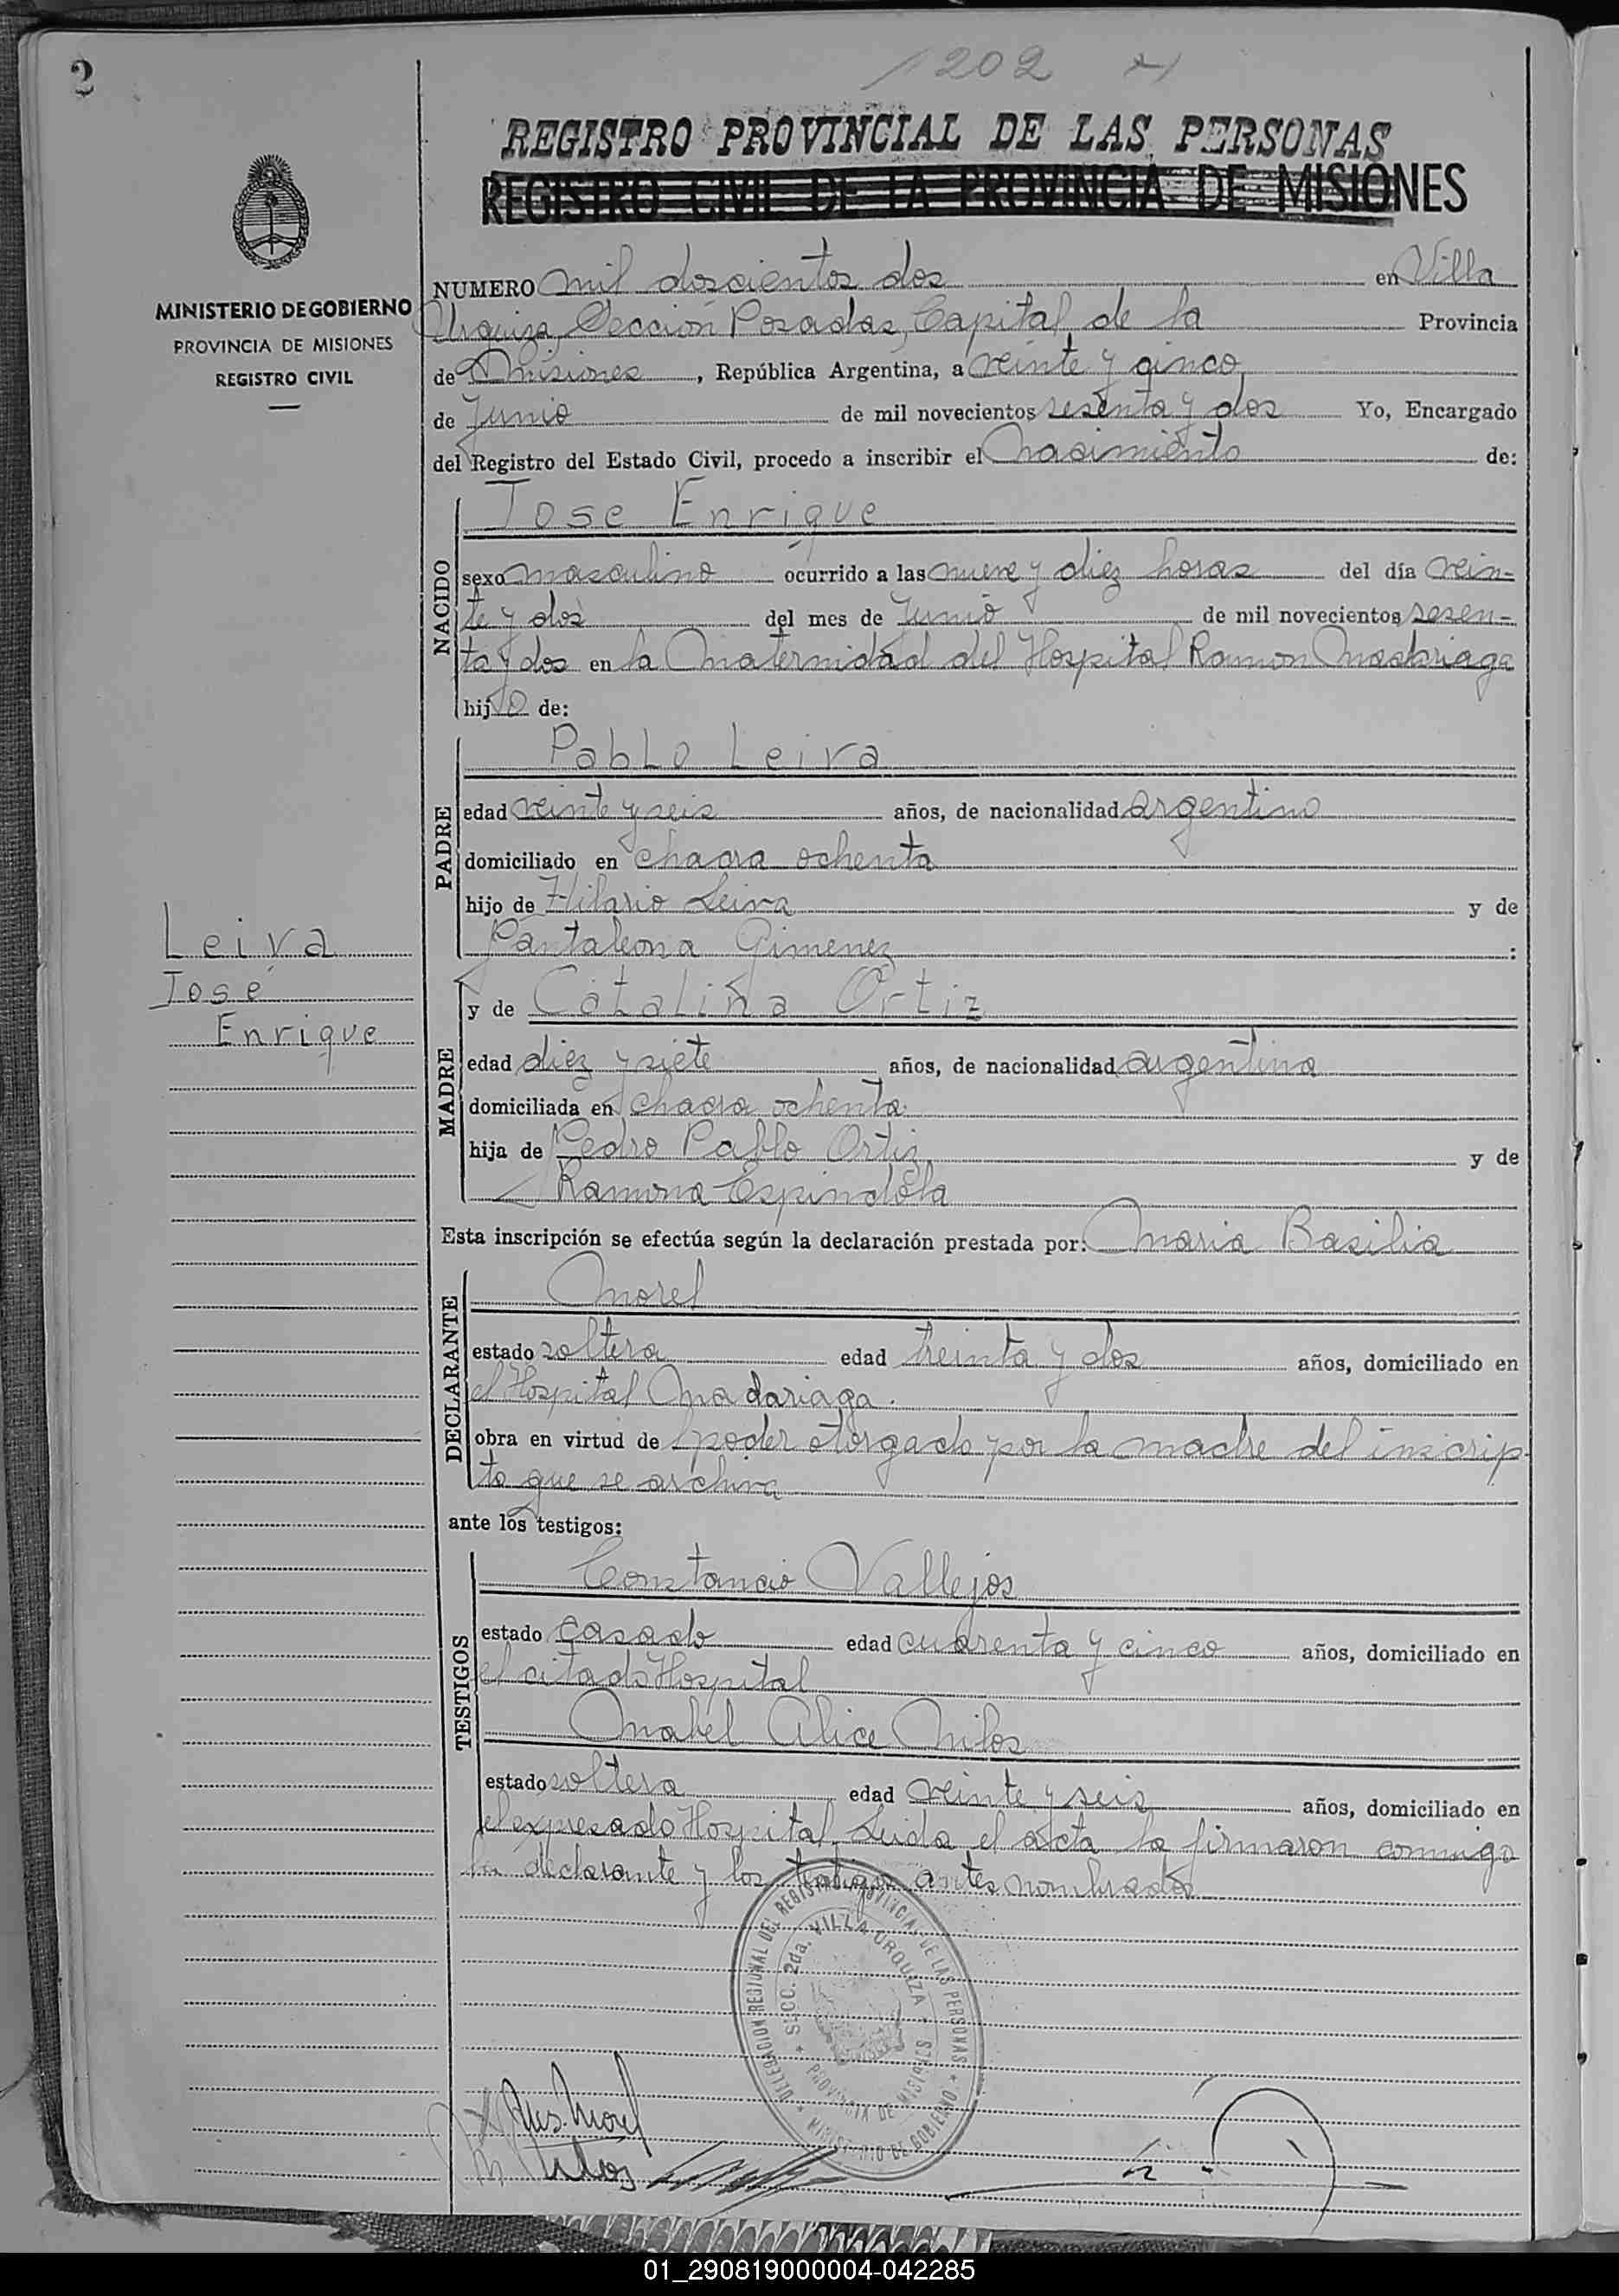 2
1202
REGISTRO PROVINCIAL DE LAS PERSONAS
REGISTRO CIVIL DE LA PROVINCIA DE MISIONES
MINISTERIO DE GOBIERNO
PROVINCIA DE MISIONES
REGISTRO CIVIL
NUMERO mil doscientos dos en Villa
Urquiza, Seccion Posadas, Capital de la Provincia
de Misiones, República Argentina, a veinte y cinco
de Junio de mil novecientos sesenta y dos Yo, Encargado
del Registro del Estado Civil, procedo a inscribir el Nacimiento de:
NACIDO
Jose Enrique
sexo masculino ocurrido a las nueve y diez horas del día vein-
te y dos del mes de Junio de mil novecientos sesen-
ta y dos en la Maternidad del Hospital Ramon Madariaga
hijo de:
PADRE
Pablo Leiva
edad veinte y seis años, de nacionalidad argentino
domiciliado en chacra ochenta
hijo de Hilario Leiva y de
Pantaleona Gimenez :
Leiva
José
Enrique
MADRE
y de Catalina Ortiz
edad diez y siete años, de nacionalidad argentina
domiciliada en chacra ochenta
hija de Pedro Pablo Ortiz y de
Ramona Espindola
Esta inscripción se efectúa según la declaración prestada por: Maria Basilia
DECLARANTE
Morel
estado soltera edad treinta y dos años, domiciliado en
el Hospital Madariaga.
obra en virtud de poder otorgado por la madre del inscrip-
to que se archiva
ante los testigos:
TESTIGOS
Constancio Vallejos
estado casado edad cuarenta y cinco años, domiciliado en
el citado Hospital
Mabel Alice Milos
estado soltera edad veinte y seis años, domiciliado en
el expresado Hospital. Leida el acta la firmaron conmigo
la declarante y los testigos antes nombrados
DELEGACION REGIONAL DEL REGISTRO PROVINCIAL DE LAS PERSONAS
SECC. 2da. VILLA URQUIZA
PROVINCIA DE MISIONES
MINISTERIO DE GOBIERNO
Morel
01_290819000004-042285